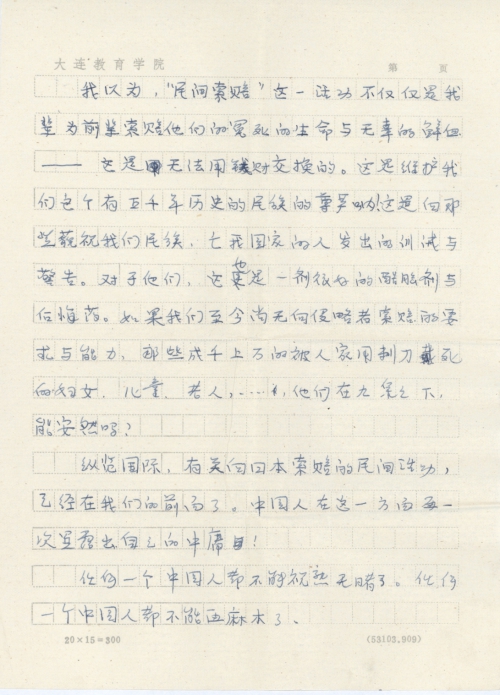 大连教育学院 第 页
我以为，“民间索赔”这一活动不仅仅是我
辈为前辈索赔他们的冤死的生命与无辜的鲜血
—— 这是无法用钱财交换的。这是维护我
们这个有五千年历史的民族的尊严，这是向那
些藐视我们民族、七我国家的人发出的训诫与
警告。对于他们，这也是一剂很好的醒脑剂与
后悔药。如果我们至今尚无向侵略者索赔的要
求与能力，那些成千上万的被人家用刺刀死
的妇女、儿童、老人，……，他们在九泉之下，
能安然吗？
纵览国际，有关向日本索赔的民间活动，
已经在我们的前面了。中国人在这一方面再一
次显露出自己的中庸！
任何一个中国人都不能视熟无睹了。任何
一个中国人都不能再麻木了。
20×15=300 (53103.909)